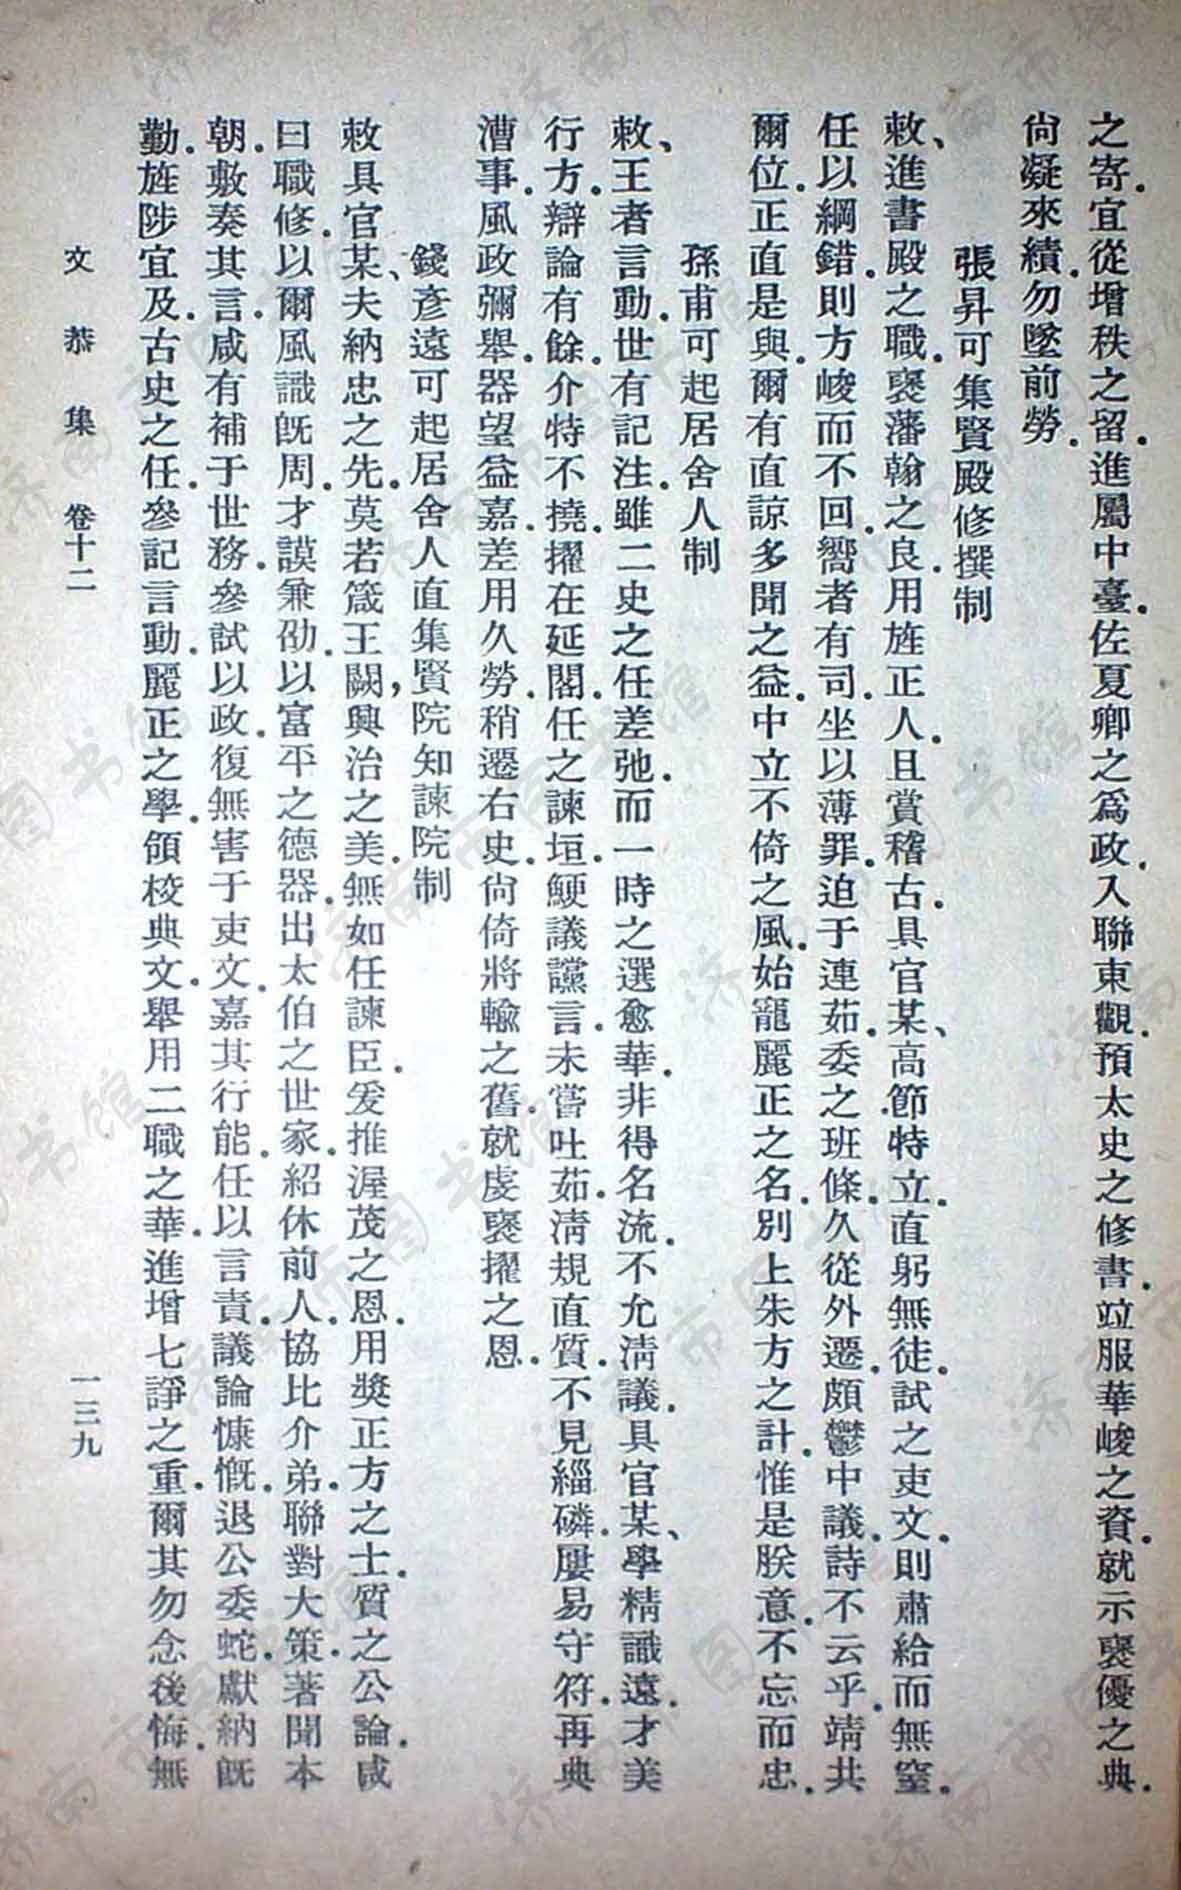 之寄.宜從增秩之留.進屬中臺.佐夏卿之爲政.入聯東觀.預太史之修書.竝服華峻之資.就示褒優之典.
尙凝來績.勿墜前勞.
張昇可集賢殿修撰制
敕、進書殿之職.褒藩翰之良.用旌正人.且賞稽古.具官某、高節特立.直躬無徒.試之吏文.則肅給而無窒.
任以綱錯.則方峻而不回.嚮者有司.坐以薄罪.迫于連茹.委之班條.久從外遷.頗鬱中議.詩不云乎.靖共
爾位.正直是與.爾有直諒多聞之益.中立不倚之風.始寵麗正之名.別上朱方之計.惟是朕意.不忘而忠.
孫甫可起居舍人制
敕、王者言動.世有記注.雖二史之任差弛.而一時之選愈華.非得名流.不允淸議.具官某、學精識遠.才美
行方.辯論有餘.介特不撓.擢在延閣.任之諫垣.鯁議讜言.未嘗吐茹.淸規直質.不見緇磷.屢易守符.再典
漕事.風政彌舉.器望益嘉.差用久勞.稍遷右史.尙倚將輸之舊.就虔褒擢之恩.
錢彥遠可起居舍人直集賢院知諫院制
敕具官某、夫納忠之先.莫若箴王闕,興治之美.無如任諫臣.爰推渥茂之恩.用奬正方之士.質之公論.咸
曰職修.以爾風識旣周.才謨兼劭.以富平之德器.出太伯之世家.紹休前人.協比介弟.聯對大策.著聞本
朝.敷奏其言.咸有補于世務.參試以政.復無害于吏文.嘉其行能.任以言責.議論慷慨.退公委蛇.獻納旣
勤.旌陟宜及.古史之任.參記言動.麗正之學.領校典文.舉用二職之華.進增七諍之重.爾其勿念後悔.無
文恭集 卷十二 一三九
济南市图书馆